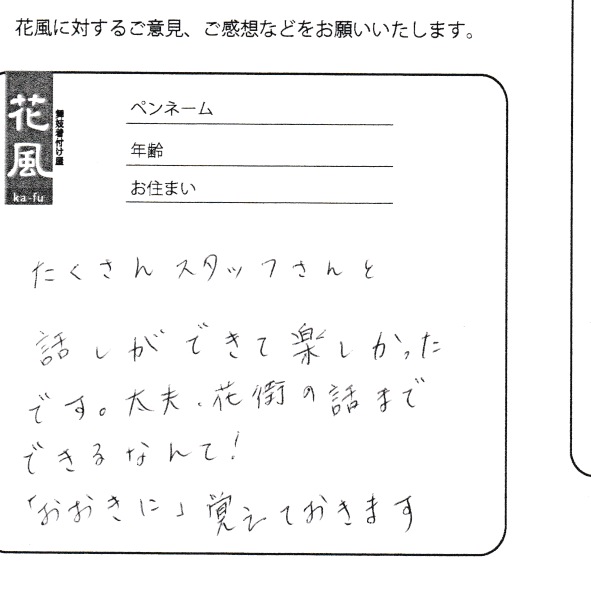 花風に対するご意見、ご感想などをお願いいたします。
花風
ka-fu
舞妓着付け屋
ペンネーム
年齢
お住まい
たくさんスタッフさんと
話しができて楽しかった
です。太夫、花街の話まで
できるなんて!
「おおきに」覚えておきます